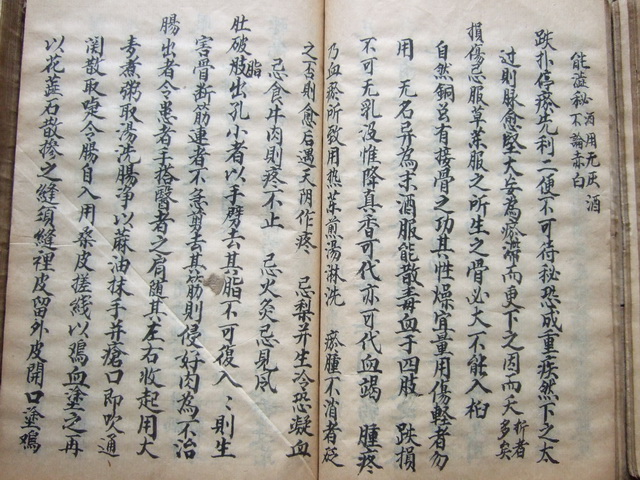 能溢秘不論赤白 酒用无灰酒
跌扑停瘀先利二便不可待秘恐成重疾然下之太
过則脉愈堅大妄為瘀滞而更下之因而夭折者多矣
損傷忌服草药服之所生之骨必大不能入柏
自然铜śś有接骨之功其性燥宜量用傷輕者勿
用 无名异為末酒服能散毒血于四肢 跌損
不可无乳没惟降真香可代亦可代血竭 腫疼
乃血瘀所致用热药煎湯淋洗 瘀腫不消者砭
之否則愈后遇天阴作疼 忌梨并生冷恐凝血
忌食牛肉則疼不止 忌火灸忌見风
肚破脂出孔小者以手劈去其脂不可復入入則生
害骨断筋連者不急剪去其筋則侵好肉為不治
腸出者令患者手搭醫者之肩随其左右收起用大
麦煮粥取湯洗腸净以蔴油抹手并瘡口即吹通
関散取嚏令腸自入用桑皮搓线以鸡血塗之再
以花蕊石散掺之缝須缝裡皮留外皮開口塗鸡